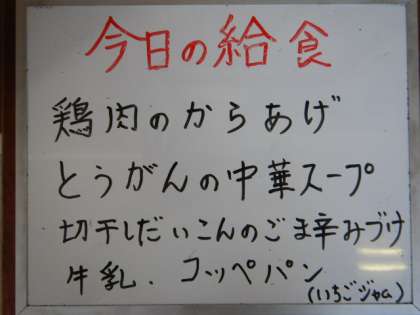 今日の給食
鶏肉のからあげ
とうがんの中華スープ
切干しだいこんのごま辛みづけ
牛乳．コッペパン
(いちごジャム)